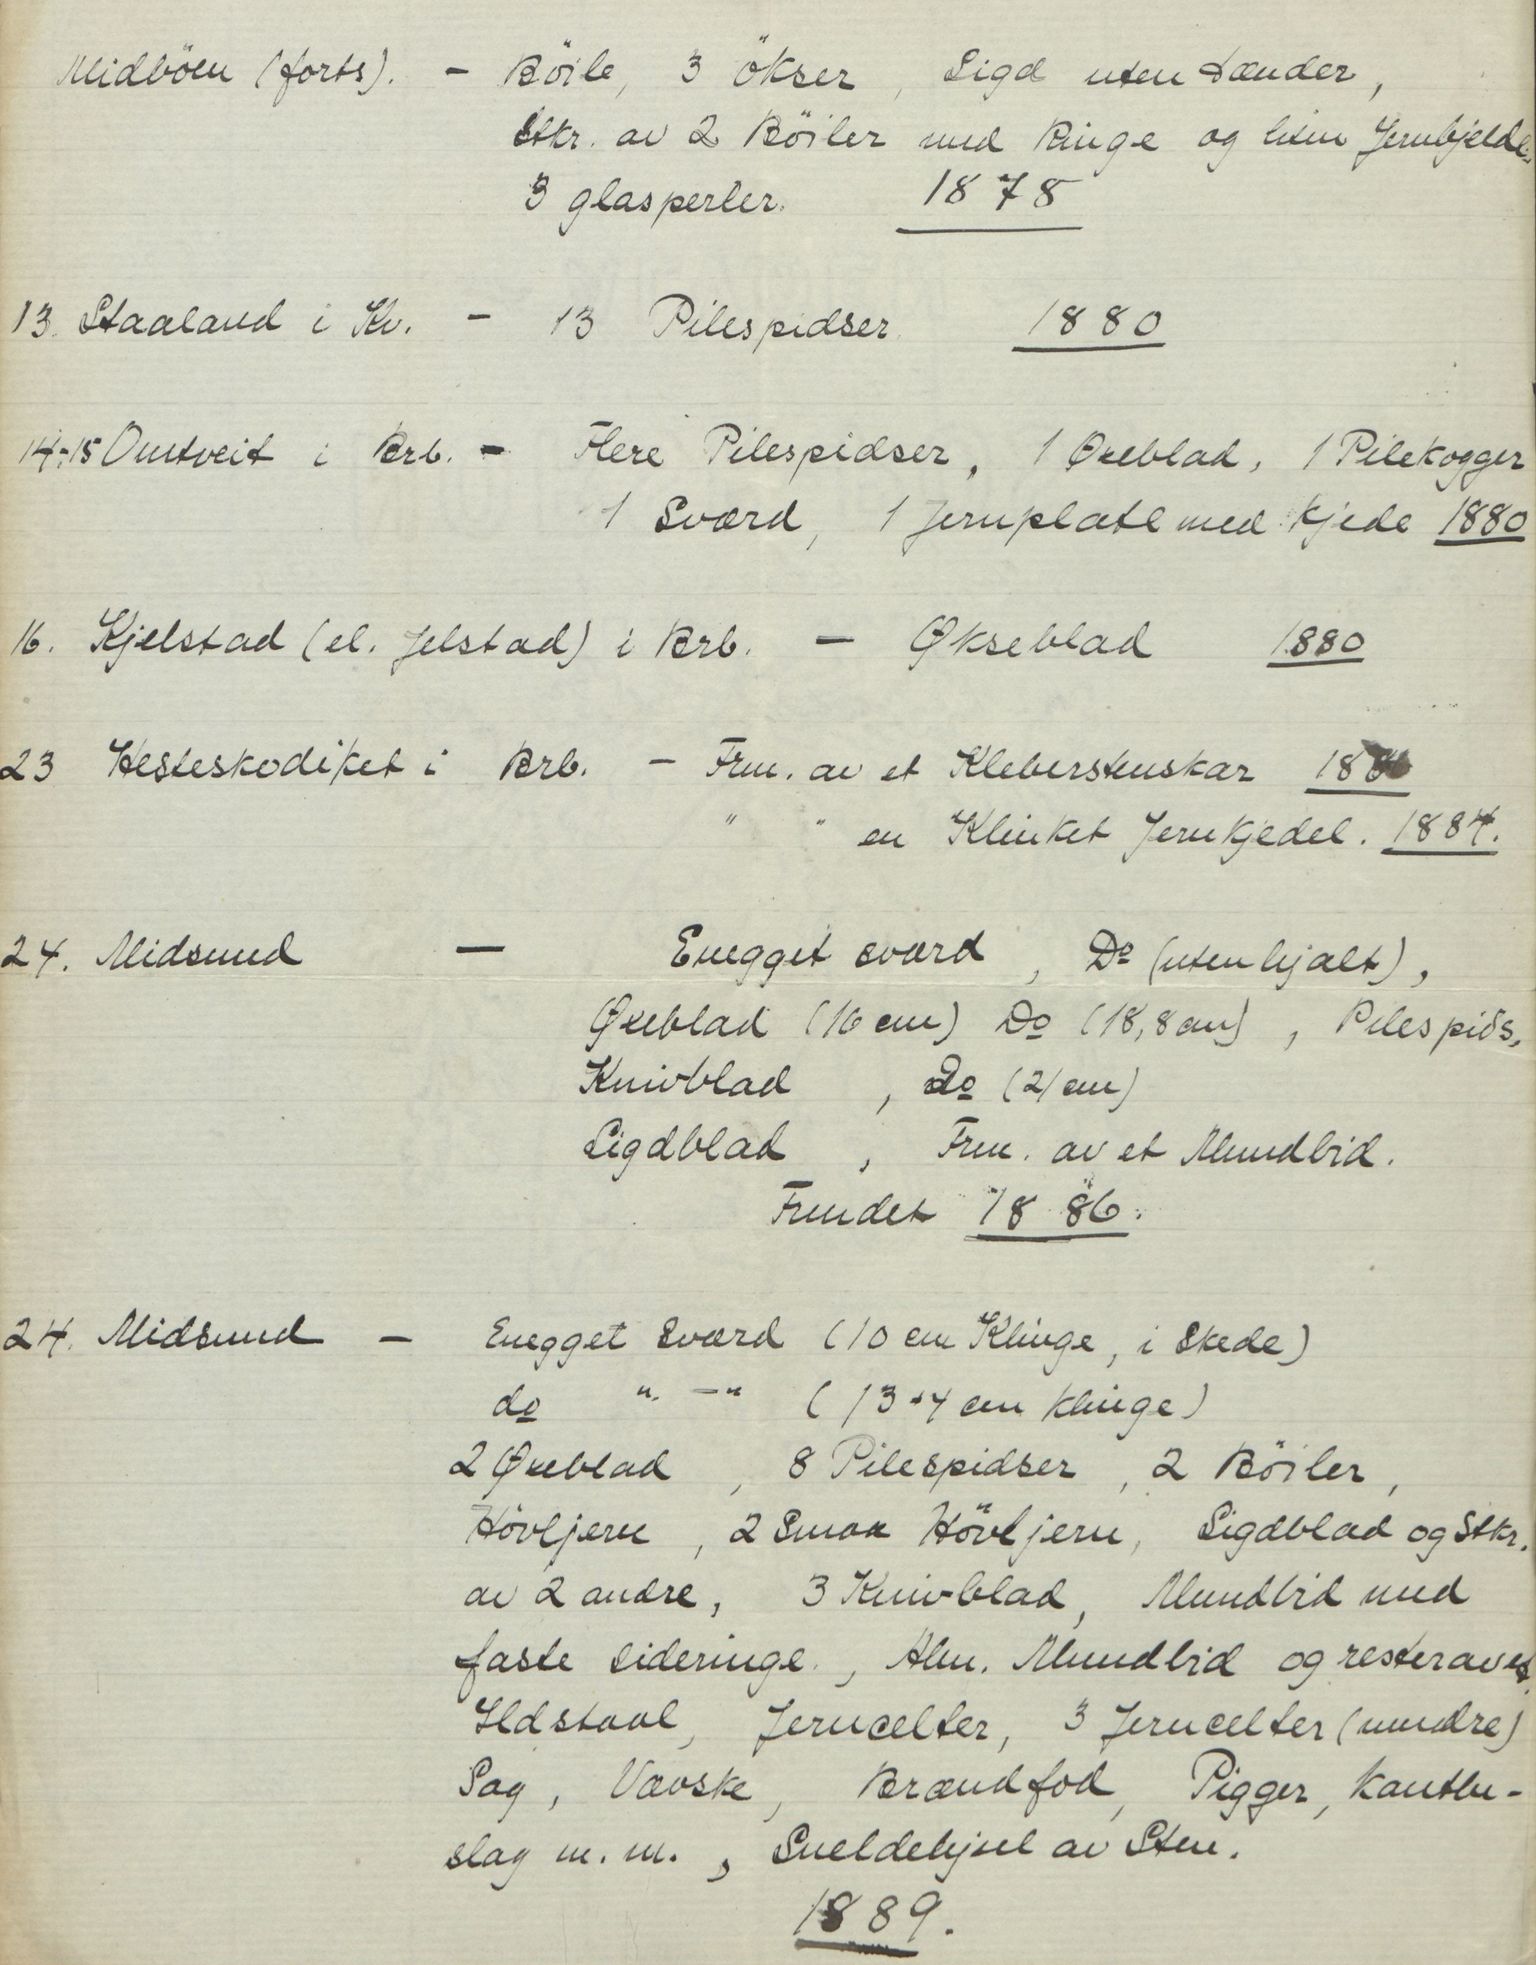 Midböen (forts). - Böile, 3 ökser, Sigd uten tænder,
Stkr. av 2 Böiler med Ringe og liten Jernbjelde.
3 glasperler. 1878
13. Staaland i Kv. - 13 Pilespidser. 1880
14-15 Omtveit i Brb. - Flere Pilespidser, 1 Øxeblad, 1 Pilekogger
1 Sværd, 1 Jernplate med Kjede 1880
16. Kjelstad (el. Jelstad) i Brb. - Økseblad 1880
23 Hesteskodiket i Brb. - Frm. av et Kleberstenskar
" " en Klinket Jernkjedel. 1884.
24. Midsund - Enegget sværd, Do (uten hjalt),
Øxeblad (16 cm) Do (18,8 cm), Pilespids,
Knivblad, Do (21 cm)
Sigdblad, Frm. av et Mundbid.
Fundet 1886.
24. Midsund - Enegget Sværd (10 cm Klinge, i Skede)
do " - " ( cm Klinge)
2 Øxeblad, 8 Pilespidser, 2 Böiler,
Hövljern, 2 Smaa Hövljern, Sigdblad og Stkr.
av 2 andre, 3 Knivblad, Mundbid med
faste sideringe, Alm. Mundbid og rester av et
Ildstaal, Jerncelter, 3 Jerncelter (mindre)
Sag, Vævske, Brændfod, Pigger, Kantbe-
slag m. m., Sneldehjul av Sten.
1889.